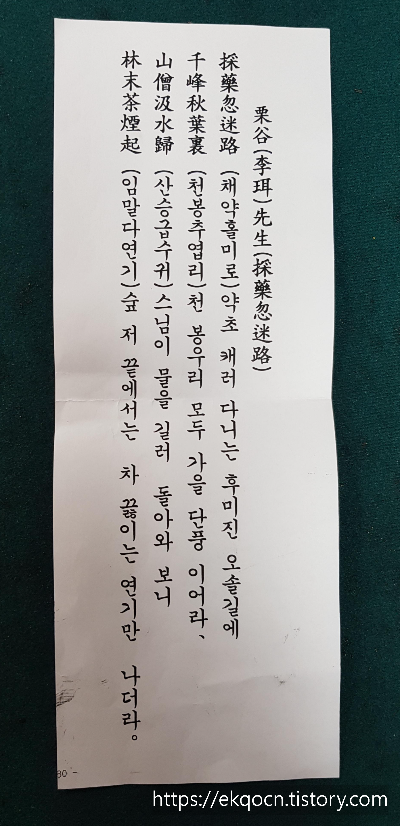 栗谷(李珥)先生(採藥忽迷路)
採藥忽迷路 (채약홀미로)약초 캐러 다니는 후미진 오솔길에
千峰秋葉裏 (천봉추엽리)천 봉우리 모두 가을 단풍 이어라、
山僧汲水歸 (산승급수귀)스님이 물을 길러 돌아와 보니
林末茶煙起 (임말다연기)숲 저 끝에서는 차 끓이는 연기만 나더라。
80 -
https://ekqocn.tistory.com